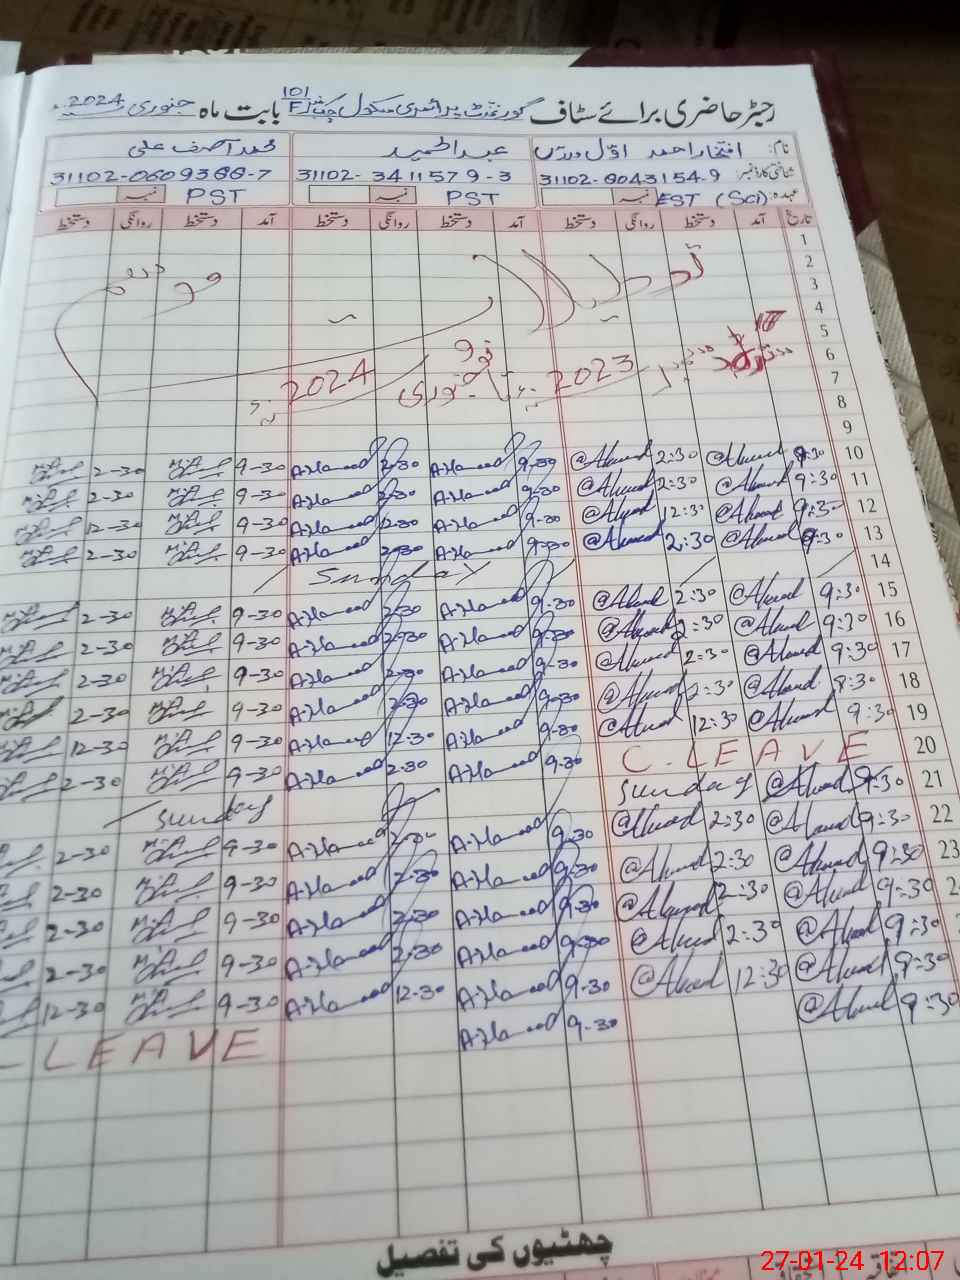 رجسٹر حاضری برائے سٹاف گورنمنٹ پرائمری سکول چک نمبر 101/F بابت ماہ جنوری 2024ء
نام: افتخار احمد اوّل مدرس عبدالحمید محمد آصف علی
شناختی کارڈ نمبر: 31102-6043154-9 31102-3411579-3 31102-0609366-7
عہدہ: EST (Sci) نمبر PST نمبر PST نمبر
تاریخ آمد دستخط روانگی دستخط آمد دستخط روانگی دستخط آمد دستخط روانگی دستخط
1
2
3
4
5
6 2023 تا جنوری 2024
7
8
9
10 9:30 @Ahmed 2:30 @Ahmed 9-30 A.Hameed 2-30 A.Hameed 9-30 2-30
11 9:30 @Ahmed 2:30 @Ahmed 9-30 A.Hameed 2-30 A.Hameed 9-30 2-30
12 9:30 @Ahmed 12:30 @Ahmed 9-30 A.Hameed 12-30 A.Hameed 9-30 12-30
13 9:30 @Ahmed 2:30 @Ahmed 9-30 A.Hameed 2-30 A.Hameed 9-30 2-30
14 Sunday
15 9:30 @Ahmed 2:30 @Ahmed 9-30 A.Hameed 2-30 A.Hameed 9-30 2-30
16 9:30 @Ahmed 2:30 @Ahmed 9-30 A.Hameed 2-30 A.Hameed 9-30 2-30
17 9:30 @Ahmed 2:30 @Ahmed 9-30 A.Hameed 2-30 A.Hameed 9-30 2-30
18 9:30 @Ahmed 2:30 @Ahmed 9-30 A.Hameed 2-30 A.Hameed 9-30 2-30
19 9:30 @Ahmed 12:30 @Ahmed 9-30 A.Hameed 12-30 A.Hameed 9-30 12-30
20 C. LEAVE 9-30 A.Hameed 2-30 A.Hameed 9-30 2-30
21 9:30 @Ahmed Sunday Sunday
22 9:30 @Ahmed 2:30 @Ahmed 9-30 A.Hameed 2-30 A.Hameed 9-30 2-30
23 9:30 @Ahmed 2:30 @Ahmed 9-30 A.Hameed 2-30 A.Hameed 9-30 2-30
9:30 @Ahmed 2:30 @Ahmed 9-30 A.Hameed 2-30 A.Hameed 9-30 2-30
9:30 @Ahmed 2:30 @Ahmed 9-30 A.Hameed 2-30 A.Hameed 9-30 2-30
9:30 @Ahmed 12:30 @Ahmed 9-30 A.Hameed 12-30 A.Hameed 9-30 12-30
9:30 @Ahmed 9-30 A.Hameed LEAVE
چھٹیوں کی تفصیل
27-01-24 12:07